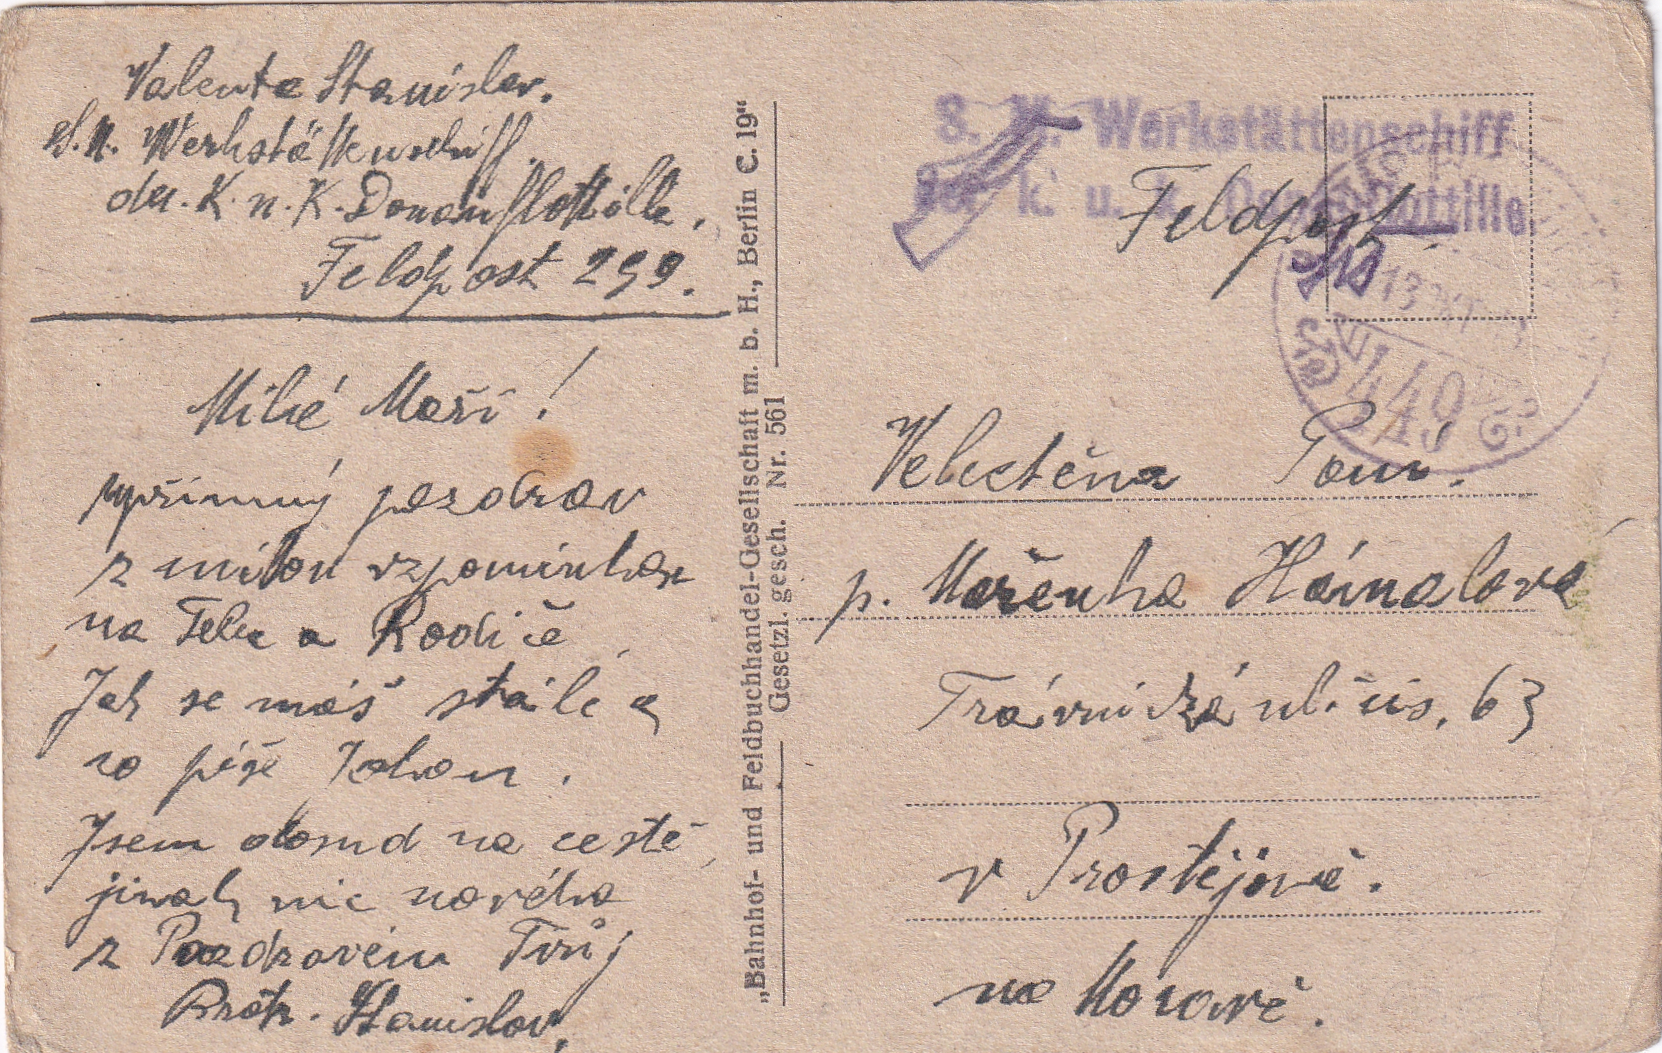 Valenta Stanislav.
S. M. Werkstättenschiff
der. K. u. K. Donauflottille,
Feldpost 299.
Milé Maří!
upřímný pozdrav
z milou vzpomínkou
na Tebe a Rodiče
Jak se máš stále a
co píše
Jsem dosud na cestě,
jinak nic nového
z Pozdravem Tvůj
Bratr. Stanislav,
„Bahnhof- und Feldbuchhandel-Gesellschaft m. b. H., Berlin C. 19“
Gesetzl. gesch. Nr. 561
S. M. Werkstättenschiff
der k. u. k. Donauflottille
Feldpost
449
Velectěna Pani.
p. Mařenka
ulice čís. 63
v Prostějově.
na Moravě.